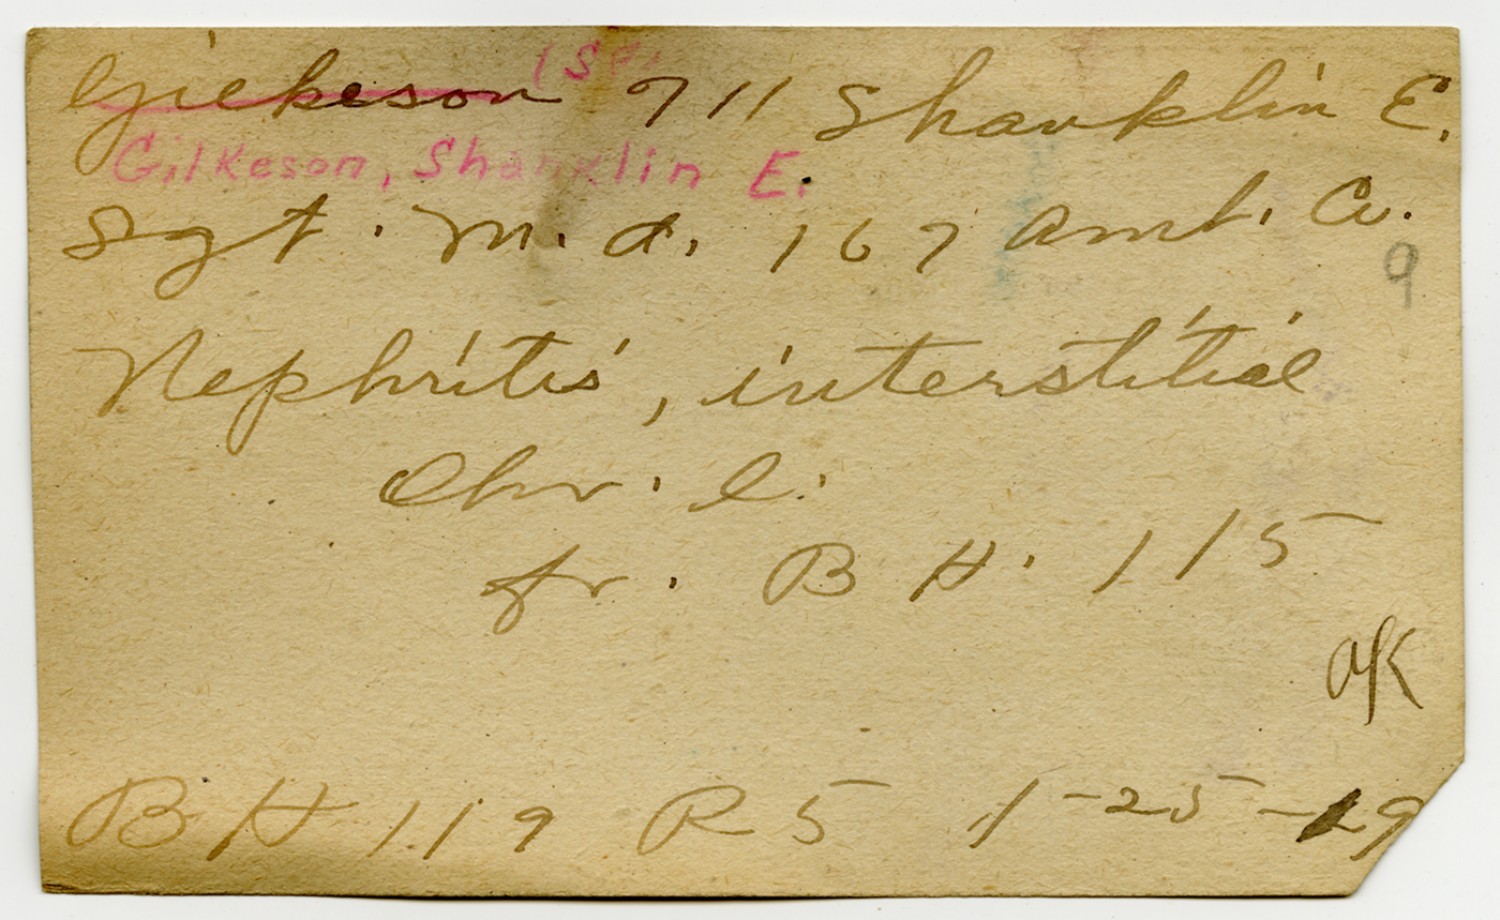 (SF)
Gilkeson 711 Shanklin E.
Gilkeson, Shanklin E.
Sgt. M.d. 167 Amb. Co.
9
Nephritis, interstitial
Chr. C.
fr. B H. 115
OK
B H 119 R 5 1-25-19